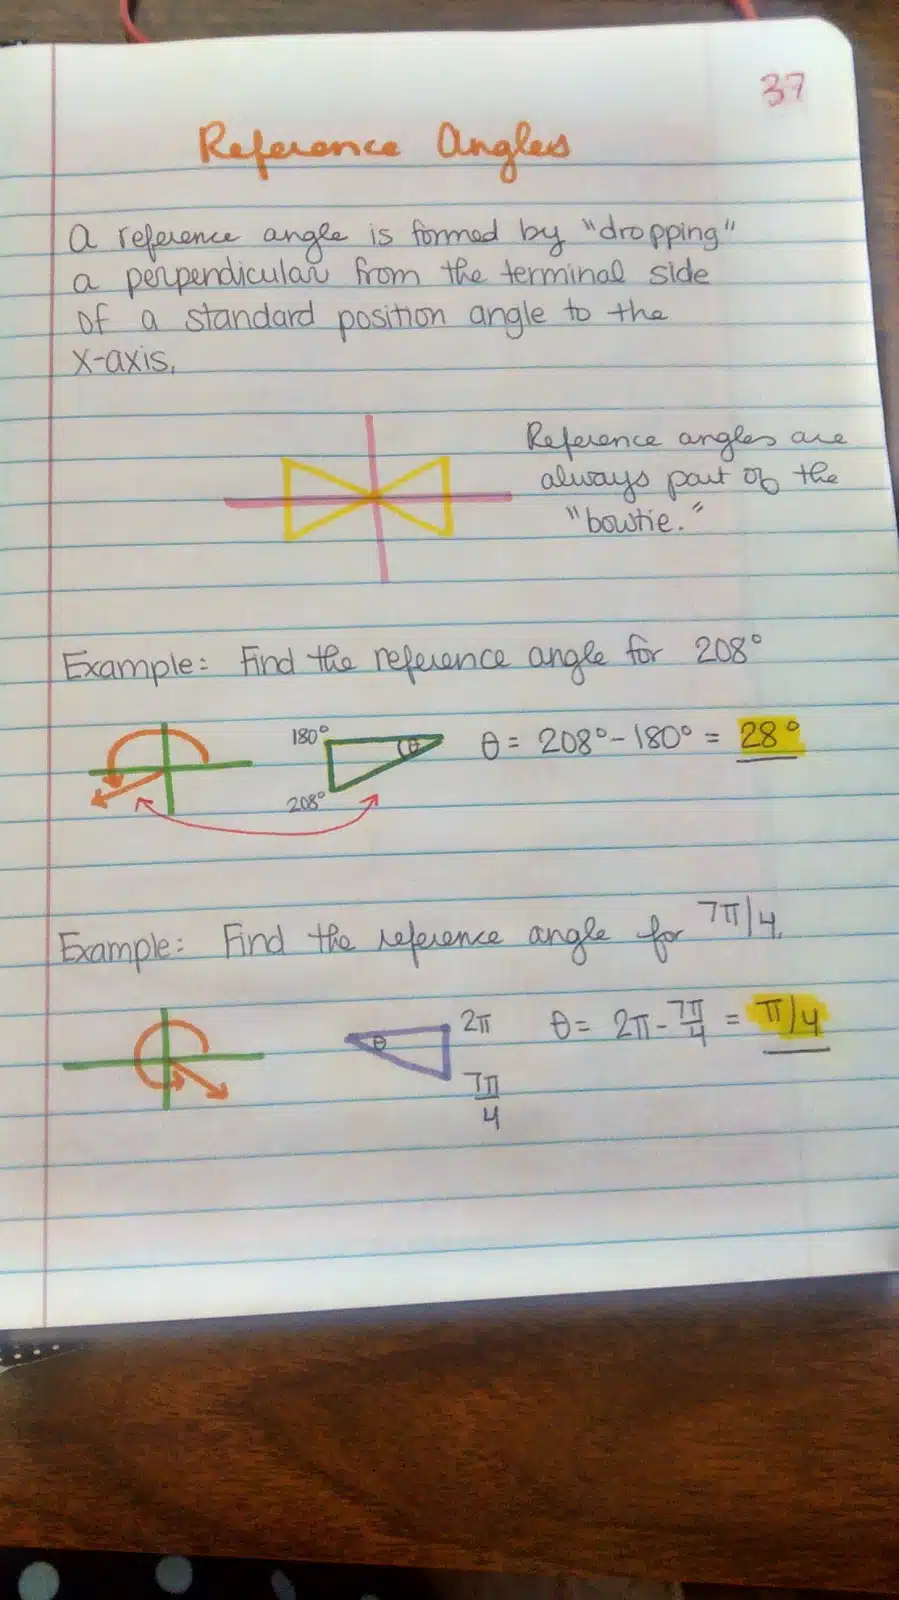 37
Reference Angles
A reference angle is formed by "dropping"
a perpendicular from the terminal side
of a standard position angle to the
x-axis.
Reference angles are
always part of the
"bowtie."
Example: Find the reference angle for 208°
180°
θ
θ = 208° - 180° = 28°
208°
Example: Find the reference angle for 7π/4.
θ
2π
θ = 2π - 7π/4 = π/4
7π/4